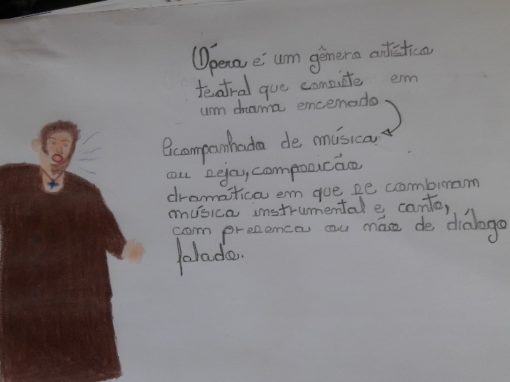 Ópera é um gênero artístico
teatral que consiste em
um drama encenado
acompanhada de música
ou seja, composição
dramática em que se combinam
música instrumental e canto,
com presença ou não de diálogo
falado.